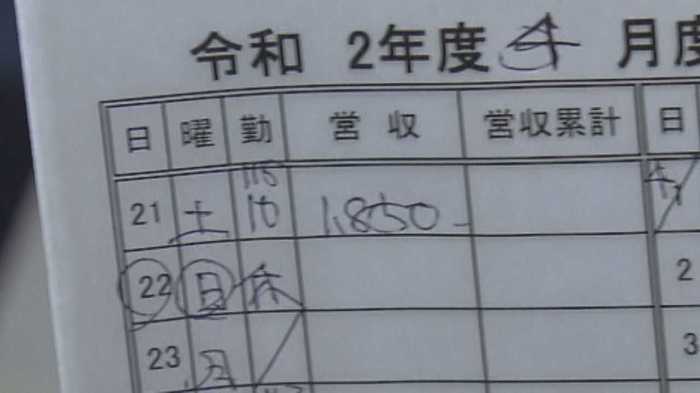 令和 2年度 4 月度
日 曜 勤 営 収 営収累計 日
21 土 10 1,850-
22 日 休 2
23 月 3